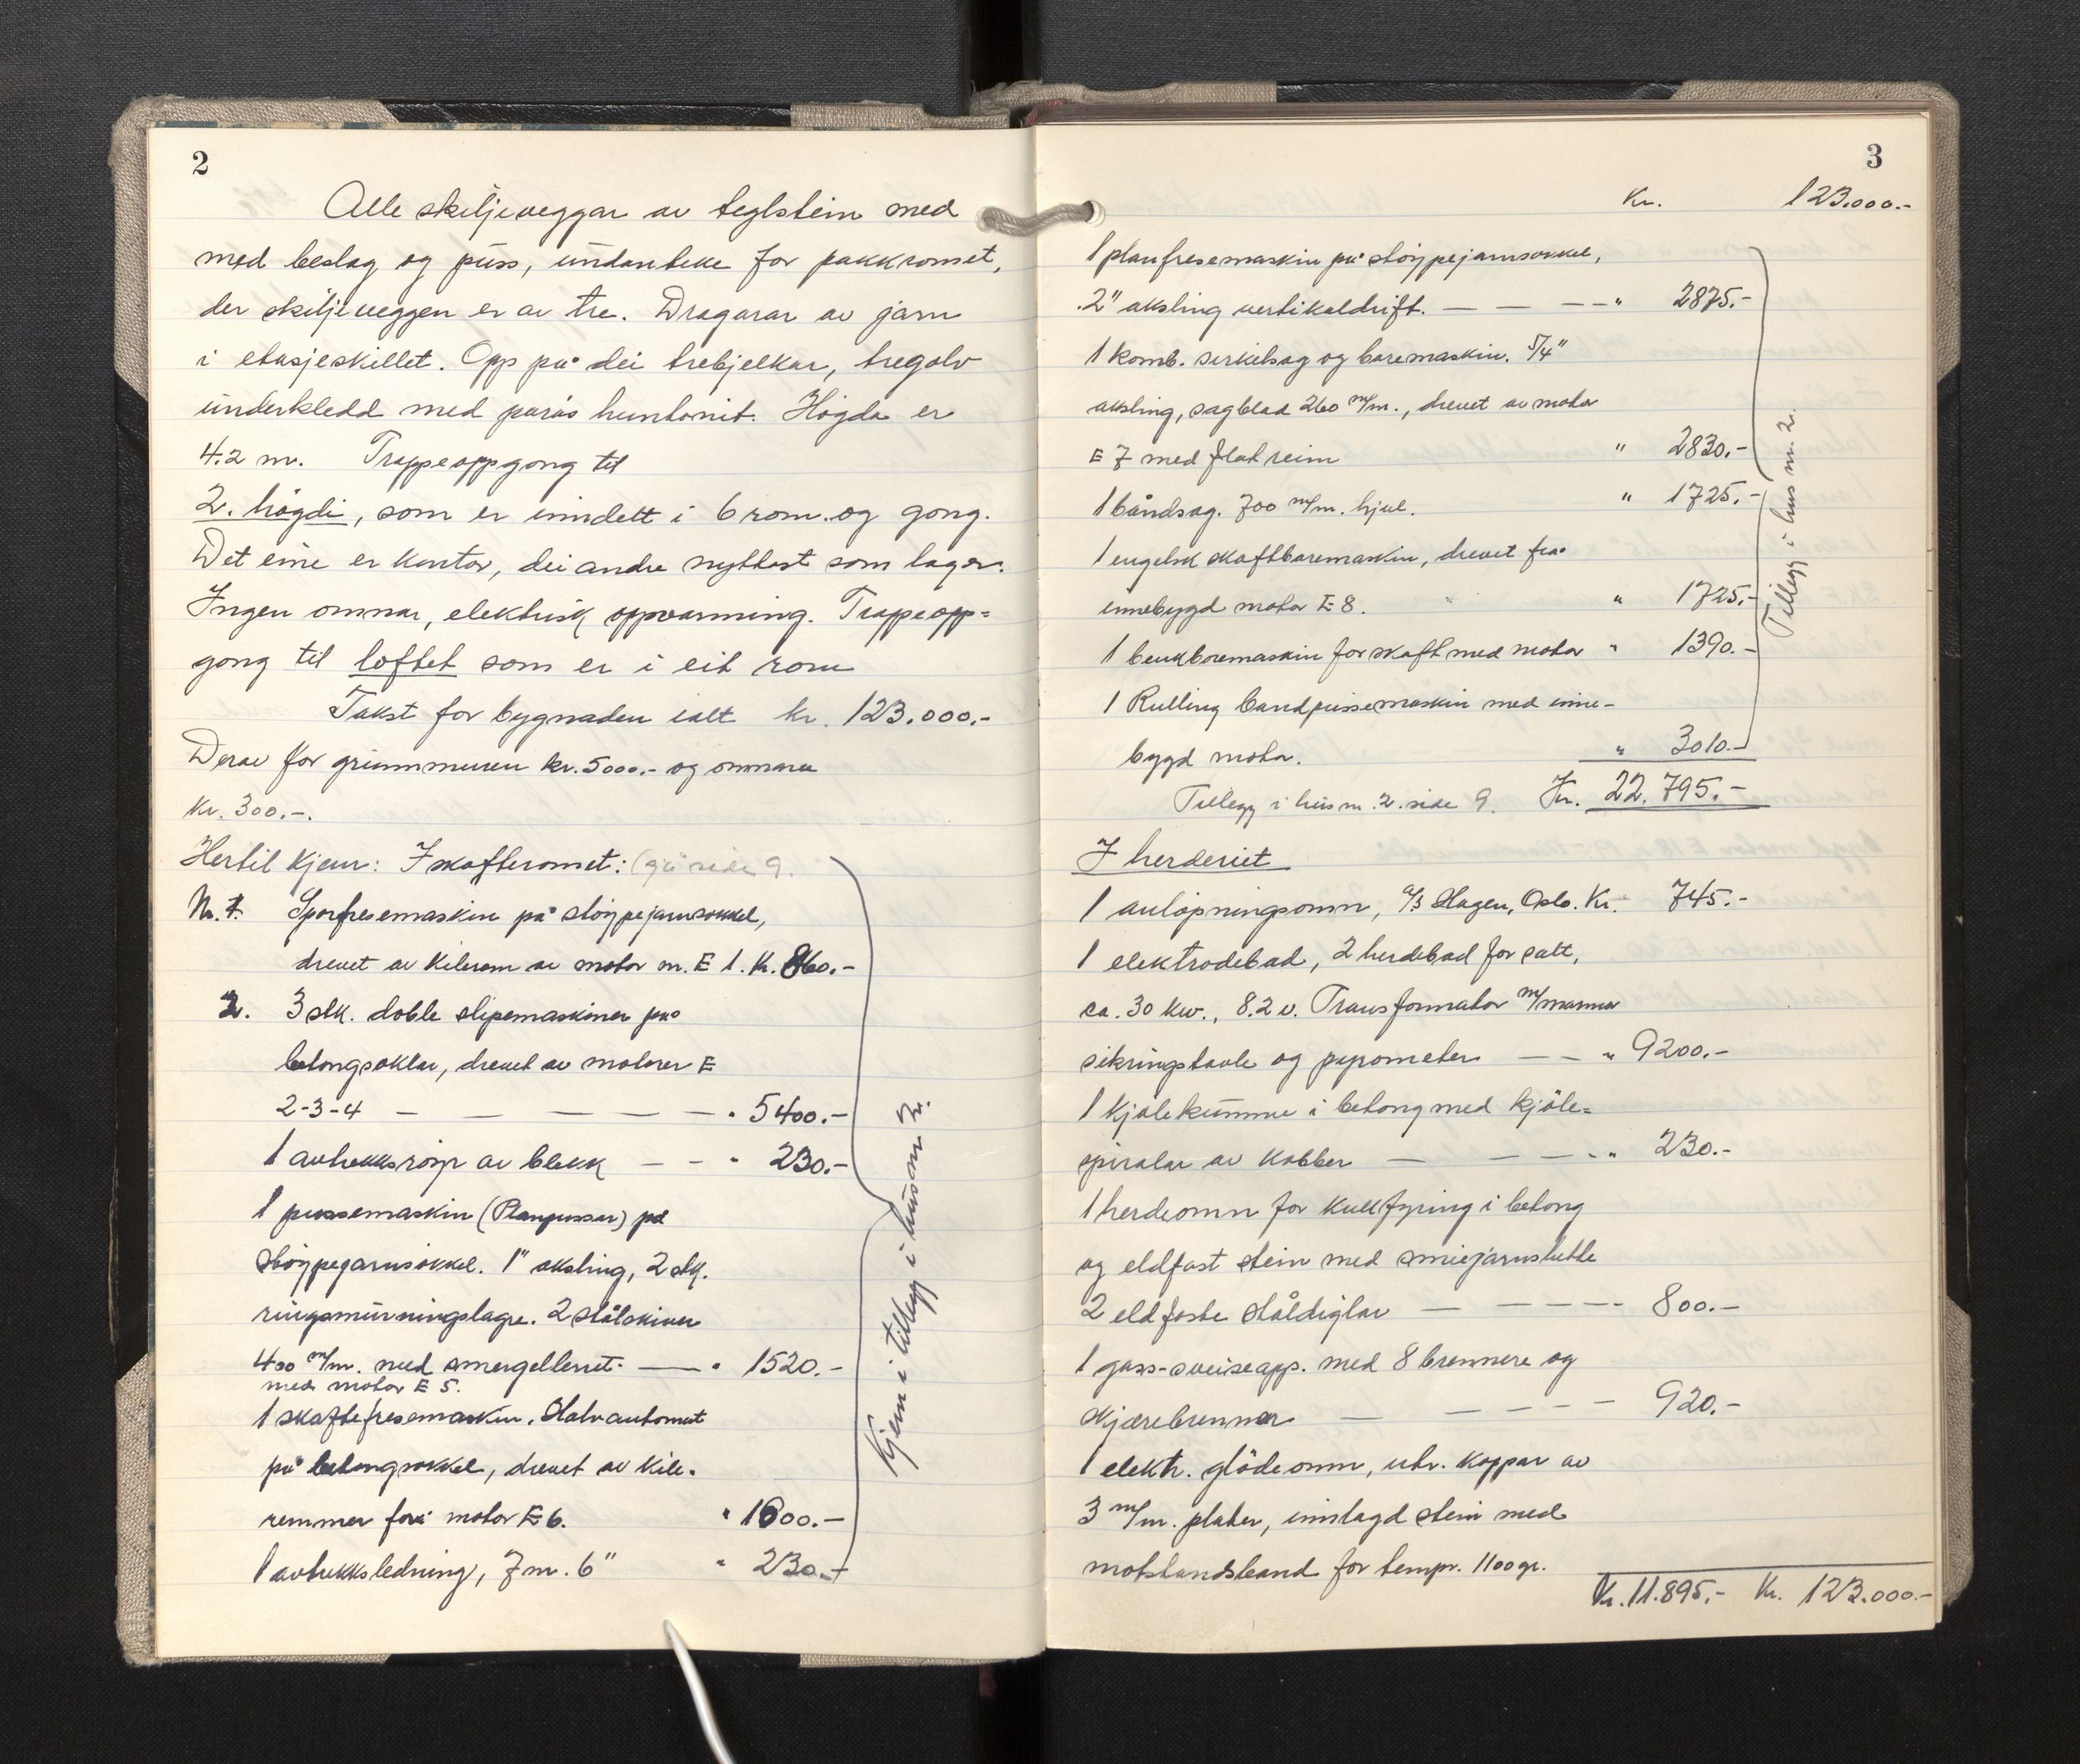 2
Alle skiljeveggar av teglstein med
med beslag og puss, undanteke for pakkromet,
der skiljeveggen er av tre. Dragarar av jarn
i etasjeskillet. Opp på dei trebjelkar, tregolv
underkledd med porøs huntonit. Högda er
4.2 m. Trappeoppgong til
2. högdi, som er inndelt i 6 rom og gong.
Det eine er kontor, dei andre nyttast som lager.
Ingen omnar, elektrisk oppvarming. Trappeopp=
gong til loftet som er i eit rom
Takst for bygnaden ialt kr. 123.000.-
Derav for grunnmuren kr. 5000.- og omnane
kr. 300.-.
Hertil kjem: I skafteromet: (gå side 9.
Nr. 1. Sporfresemaskin på stöypejarnsokkel,
drevet av kilerem av motor nr. E 1. Kr. 860.-
2. 3 stk. doble slipemaskiner på
betongsoklar, drevet av motorer E
2-3-4 — — — — — " 5400.-
1 avtrekksröyr av blekk — — " 230.-
1 pussemaskin (Planpusser) på
stöypejarnsokkel. 1" aksling, 2 stk.
ringsmurningslagre. 2 stålskiver
400 m/m. med smergellerret. — " 1520.-
med motor E 5.
1 skaftefresemaskin. Halvautomat
på betongsokkel, drevet av kile-
remmer frå motor E 6. " 1600.-
1 avtrekksledning, 7 m. 6" " 230.-
Kjem i tillegg i hus nr. 2.
3
Kr. 123.000.-
1 planfresemaskin på stöypejarnsokkel,
2" aksling vertikaldrift. — — — " 2875.-
1 komb. sirkelsag og boremaskin. 5/4"
aksling, sagblad 260 m/m., drevet av motor
E 7 med flat reim " 2830.-
1 båndsag. 700 m/m. hjul. " 1725.-
1 engelsk skaftboremaskin, drevet fra
innebygd motor E 8. " 1725.-
1 benkboremaskin for skaft med motor " 1390.-
1 Rulling bandpussemaskin med inne-
bygd motor. " 3010.-
Tillegg i hus nr. 2. side 9. Kr. 22.795.-
Tillegg i hus nr. 2.
I herderiet
1 anlöpningsomn, A/S Hagen, Oslo. Kr. 745.-
1 elektrodebad, 2 herdebad for salt,
ca. 30 kw., 8.2 v. Transformator m/marmor
sikringstavle og pyrometer — — " 9200.-
1 kjölekumme i betong med kjöle=
spiralar av kobber — — — " 230.-
1 herdeomn for kullfyring i betong
og eldfast stein med smiejarnshette
2 eldfaste ståldiglar — — — — 800.-
1 gass-sveiseapp. med 8 brennere og
skjærebrennar — — — — — 920.-
1 elektr. glödeomn, utv. kappar av
3 m/m. plater, innlagd stein med
motstandsband for tempr. 1100 gr.
Kr. 11.895.- Kr. 123.000.-